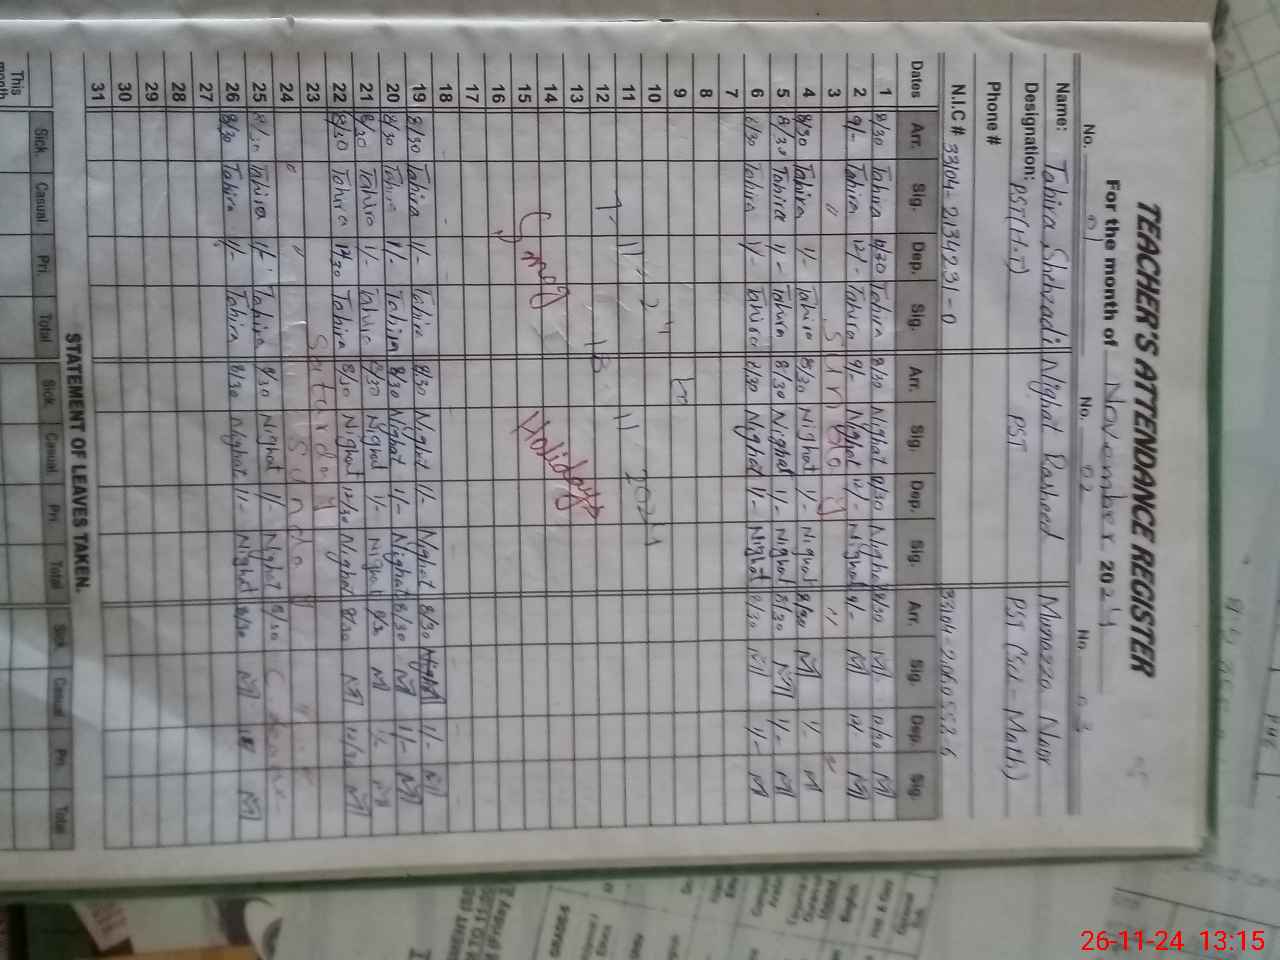 TEACHER'S ATTENDANCE REGISTER
For the month of November 2024
No. 01 No. 02 No. 03
Name: Tahira Shahzadi Nighat Rasheed Munazza Noor
Designation: PST(H.T) PST PST (Sci-Math)
Phone #
N.I.C #
Dates Arr. Sig. Dep. Sig. Arr. Sig. Dep. Sig. Arr. Sig. Dep. Sig.
1 8/30 Tahira 12/30 Tahira 8/30 Nighat 12/30 Nighat 8/30 M 12/30 M
2 9/- Tahira 12/- Tahira 9/- Nighat 12/- Nighat 9/- M 12/- M
3 " Sunday "
4 8/30 Tahira 1/- Tahira 8/30 Nighat 1/- Nighat 8/30 M 1/- M
5 8/30 Tahira 1/- Tahira 8/30 Nighat 1/- Nighat 8/30 M 1/- M
6 8/30 Tahira 1/- Tahira 8/30 Nighat 1/- Nighat 8/30 M 1/- M
7
8
9 to
10
11 7-11-24 18-11-2024
12
13
14
15 Smog Holidays
16
17
18
19 8/30 Tahira 1/- Tahira 8/30 Nighat 1/- Nighat 8/30 1/- M
20 8/30 Tahira 1/- Tahira 8/30 Nighat 1/- Nighat 8/30 M 1/- M
21 8/30 Tahira 1/- Tahira 8/30 Nighat 1/- Nighat 8/30 M 1/- M
22 8/30 Tahira 12/30 Tahira 8/30 Nighat 12/30 Nighat 8/30 M 12/30 M
23 Saturday
24 " " Sunday "
25 8/30 Tahira 1/- Tahira 8/30 Nighat 1/- Nighat 8/30
26 8/30 Tahira 1/- Tahira 8/30 Nighat 1/- Nighat 8/30 M M
27
28
29
30
31
STATEMENT OF LEAVES TAKEN.
Sick. Casual Pri. Total Sick. Casual Pri. Total Sick. Casual Pri. Total
This month
GRADE-5
26-11-24 13:15